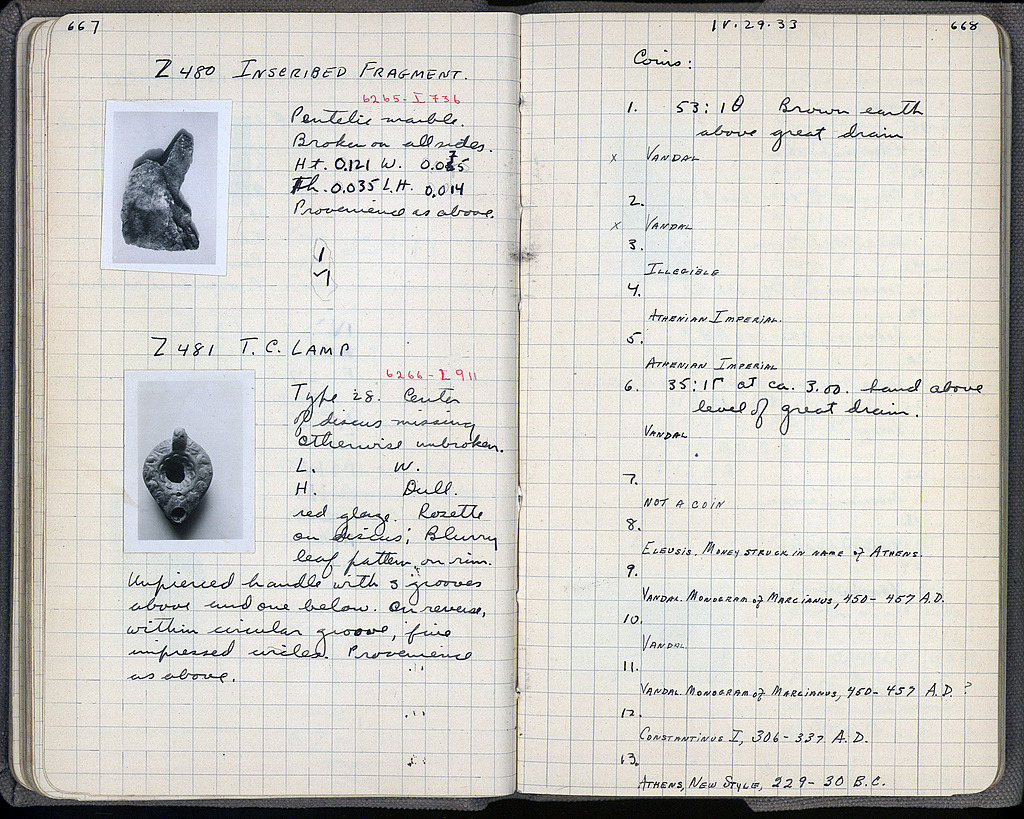 667
Z 480 INSCRIBED FRAGMENT.
6265-I 736
Pentelic marble.
Broken on all sides.
Ht. 0.121 W.
Th. 0.035 L.H. 0.014
Provenience as above.
1
√1
Z 481 T.C. LAMP
6266-L 911
Type 28. Center
of discus missing
otherwise unbroken.
L. W.
H. Dull
red glaze. Rosette
on discus; Blurry
leaf pattern on rim.
Unpierced handle with 3 grooves
above and one below. On reverse,
within circular groove, five
impressed circles. Provenience
as above.
IV.29.33
668
Coins:
1. 53:1Θ Brown earth
above great drain
x VANDAL
2.
x VANDAL
3.
ILLEGIBLE
4.
ATHENIAN IMPERIAL.
5.
ATHENIAN IMPERIAL
6. 35:1Γ at ca. 3.00. hand above
level of great drain.
VANDAL
7.
NOT A COIN
8.
ELEUSIS. MONEY STRUCK IN NAME of ATHENS.
9.
VANDAL. MONOGRAM of MARCIANUS, 450-457 A.D.
10.
VANDAL
11.
VANDAL. MONOGRAM of MARCIANUS, 450-457 A.D. ?
12.
CONSTANTINUS I, 306-337 A.D.
13.
ATHENS, NEW STYLE, 229-30 B.C.